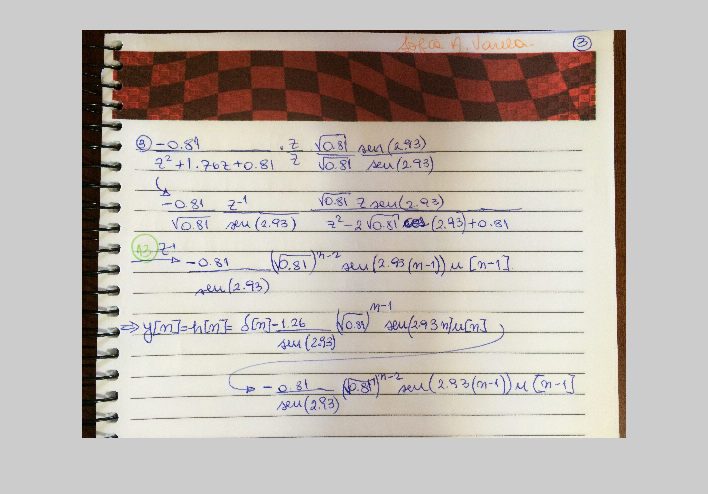 Sofía A. Varela. ③
③ -0.81 / z²+1.76z+0.81 · z/z √0.81 sen(2.93) / √0.81 sen(2.93)
↳ -0.81 z⁻¹ / √0.81 sen(2.93) √0.81 z sen(2.93) / z²-2√0.81 cos(2.93)+0.81
A3 z⁻¹ → -0.81 / sen(2.93) (√0.81)ⁿ⁻² sen(2.93(n-1)) u[n-1]
⇒ y[n]=h[n]= δ[n]-1.26 / sen(2.93) (√0.81)ⁿ⁻¹ sen(2.93n)u[n]
→ -0.81 / sen(2.93) (√0.81)ⁿ⁻² sen(2.93(n-1)) u[n-1]